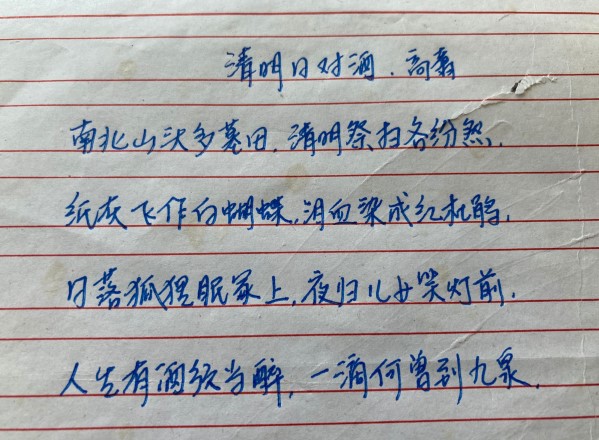 清明日对酒.高翥
南北山头多墓田,清明祭扫各纷然.
纸灰飞作白蝴蝶,泪血染成红杜鹃.
日落狐狸眠冢上,夜归儿女笑灯前.
人生有酒须当醉,一滴何曾到九泉.